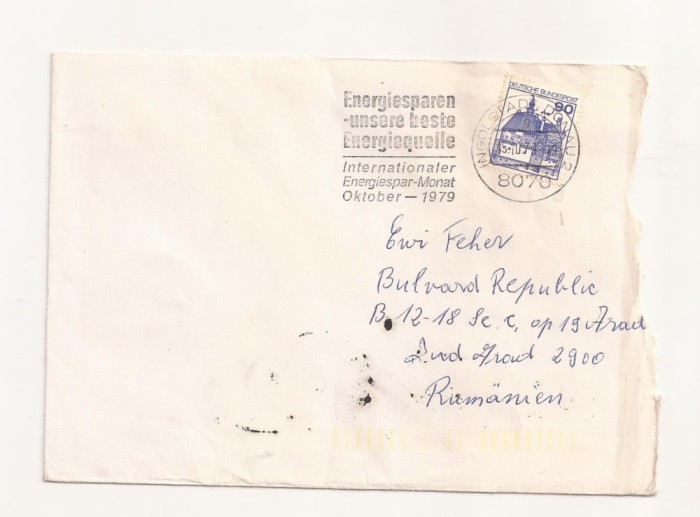 Energiesparen
-unsere beste
Energiequelle
Internationaler
Energiespar-Monat
Oktober — 1979
DEUTSCHE BUNDESPOST
90
INGOLSTADT, DONAU 2
8070
Ewi Feher
Bulvard Republic
B 12-18 Sc. C, op 19 Arad
Jud Arad 2900
Rumänien